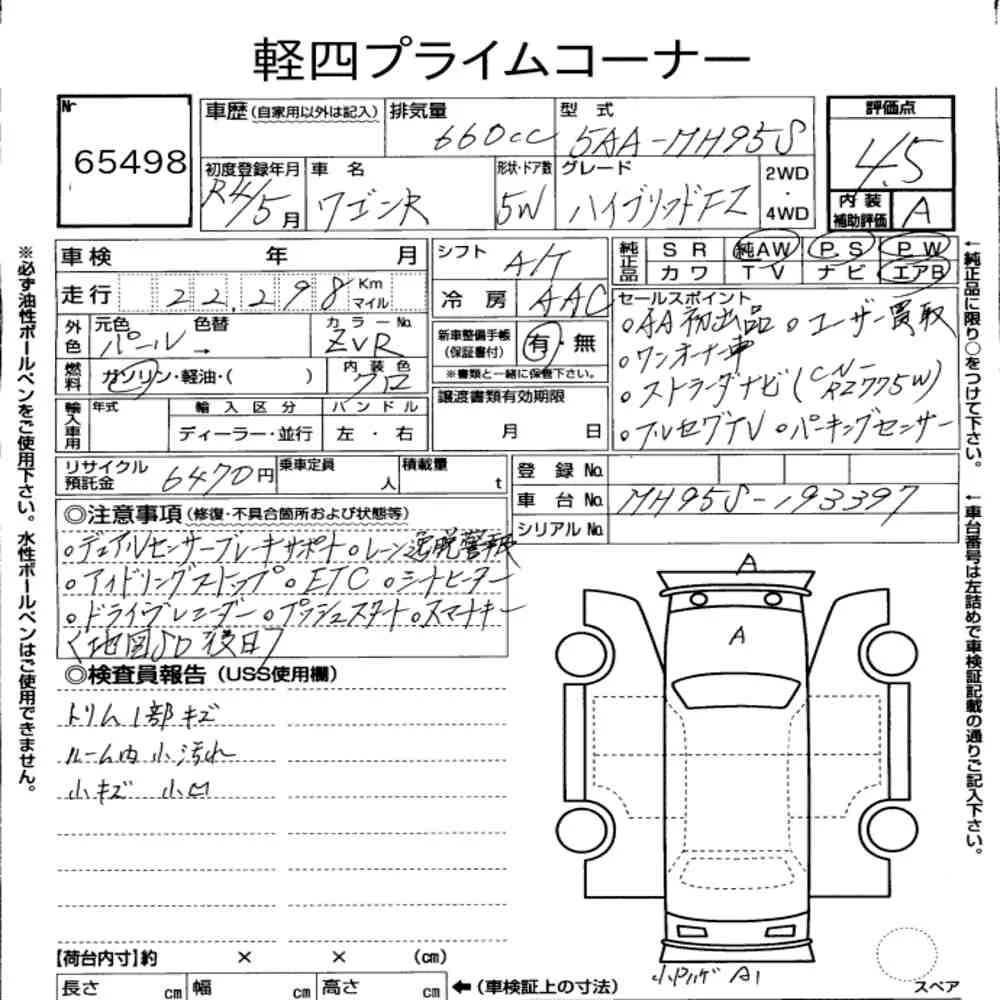 軽四プライムコーナー
Nr
65498
車歴(自家用以外は記入)
排気量
660cc
型 式
5AA-MH95S
評価点
4.5
初度登録年月
R4/5月
車 名
ワゴンR
形状・ドア数
5W
グレード
ハイブリッドFZ
2WD
・
4WD
内 装
補助評価
A
車検 年 月
走行 22,298 Km
マイル
シフト
A/T
冷 房 AAC
純正品
S R 純AW P S P W
カ ワ T V ナ ビ エアB
外色
元色 色替
パール →
カラーNo.
ZVR
新車整備手帳
(保証書付)
有・無
※書類と一緒に保管下さい。
燃料
ガソリン・軽油・( )
内 装 色
クロ
セールスポイント
○AA初出品 ○ユーザー買取
○ワンオーナー車
○ストラーダナビ(CN-RZ775W)
○フルセグTV ○パーキングセンサー
輸入車用
年式
輸 入 区 分
ディーラー・並行
ハ ン ド ル
左 ・ 右
譲渡書類有効期限
月 日
リサイクル
預託金
6470円
乗車定員
人
積載量
t
登 録 No.
車 台 No. MH95S-193397
シリアル No.
◎注意事項(修復・不具合箇所および状態等)
○デュアルセンサーブレーキサポート ○レーン逸脱警報
○アイドリングストップ ○ETC ○シートヒーター
○ドライブレコーダー ○プッシュスタート ○スマートキー
<地図SD後日>
◎検査員報告(USS使用欄)
トリム1部キズ
ルーム内小汚れ
小キズ 小凹
A
A
A1
スペア
【荷台内寸】約 × × (cm)
長さ cm 幅 cm 高さ cm ←(車検証上の寸法)
※必ず油性ボールペンをご使用下さい。水性ボールペンはご使用できません。
←純正品に限り○をつけて下さい。
←車台番号は左詰めで車検証記載の通りご記入下さい。